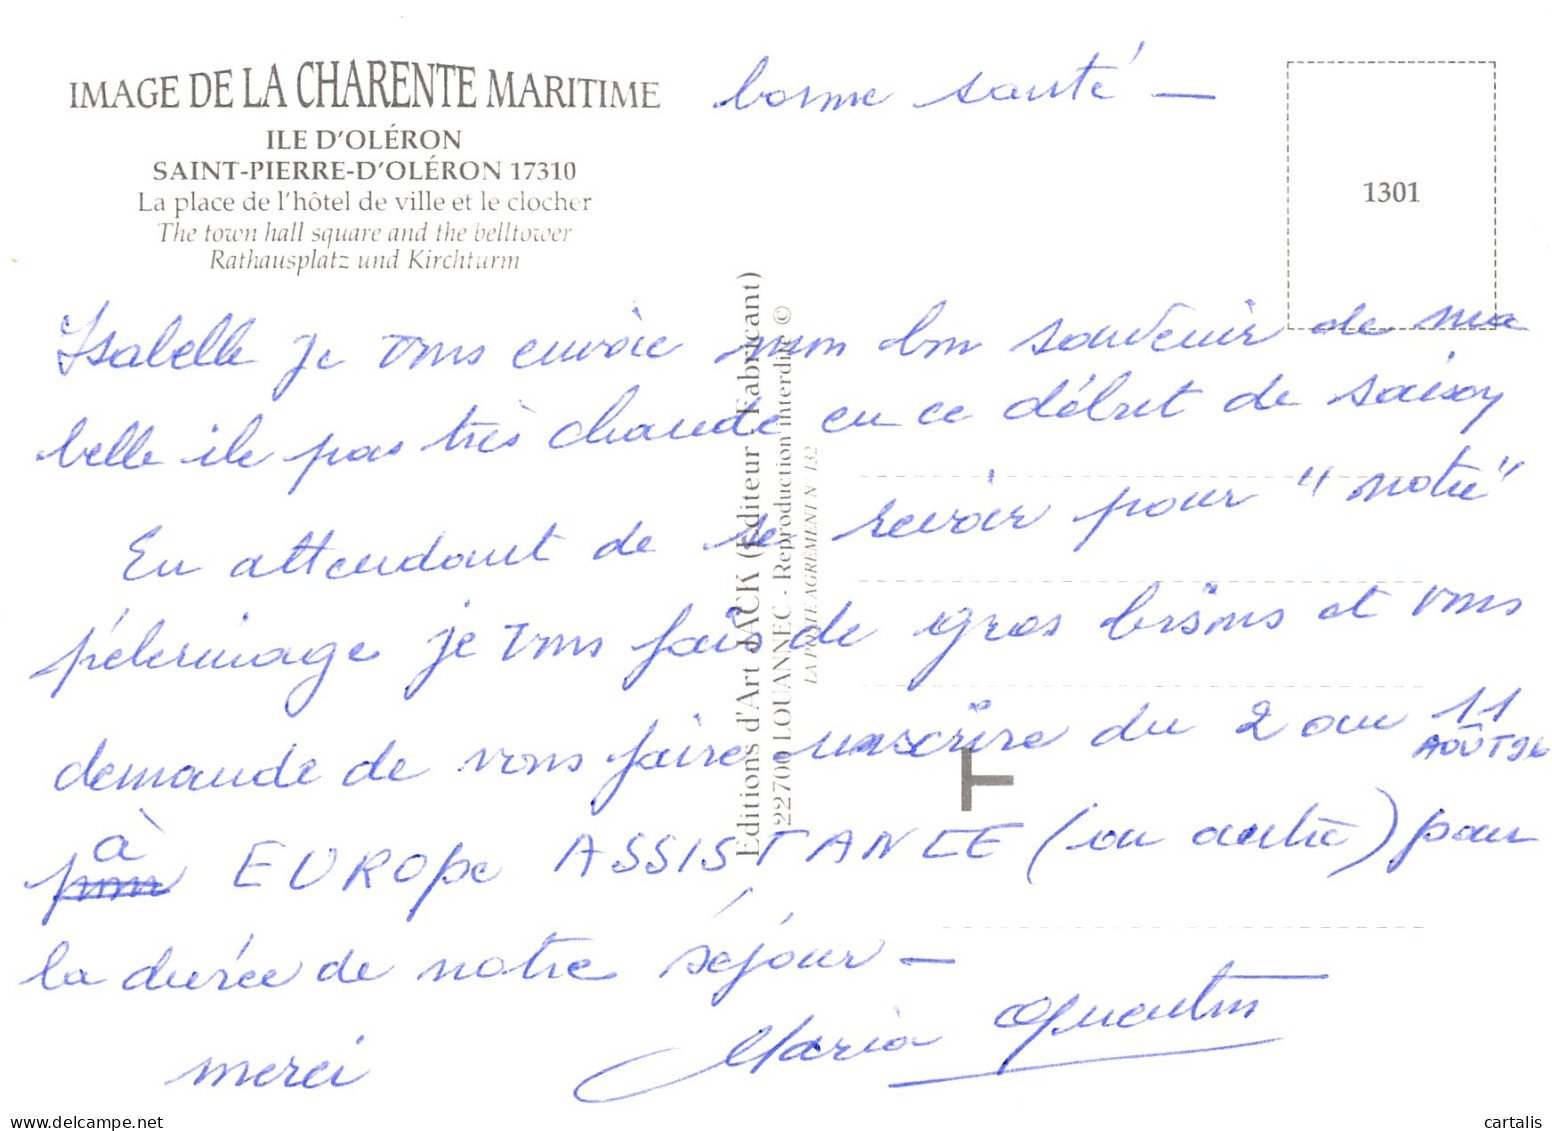 IMAGE DE LA CHARENTE MARITIME
ILE D'OLÉRON
SAINT-PIERRE-D'OLÉRON 17310
La place de l'hôtel de ville et le clocher
The town hall square and the belltower
Rathausplatz und Kirchturm
bonne santé —
1301
Isabelle je vous envoie mon bon souvenir de ma
belle ile pas très chaude en ce début de saison
En attendant de se revoir pour "notre"
pélerinage je vous fais de gros bisous et vous
demande de vous faire inscrire du 2 au 11
AOÛT 96
à EUROPE ASSISTANCE (ou autre) pour
la durée de notre séjour —
merci
Maria Quentin
Éditions d'Art JACK (Éditeur - Fabricant)
22700 LOUANNEC - Reproduction interdite ©
LA POSTE AGRÉMENT N° 132
delcampe.net
cartalis